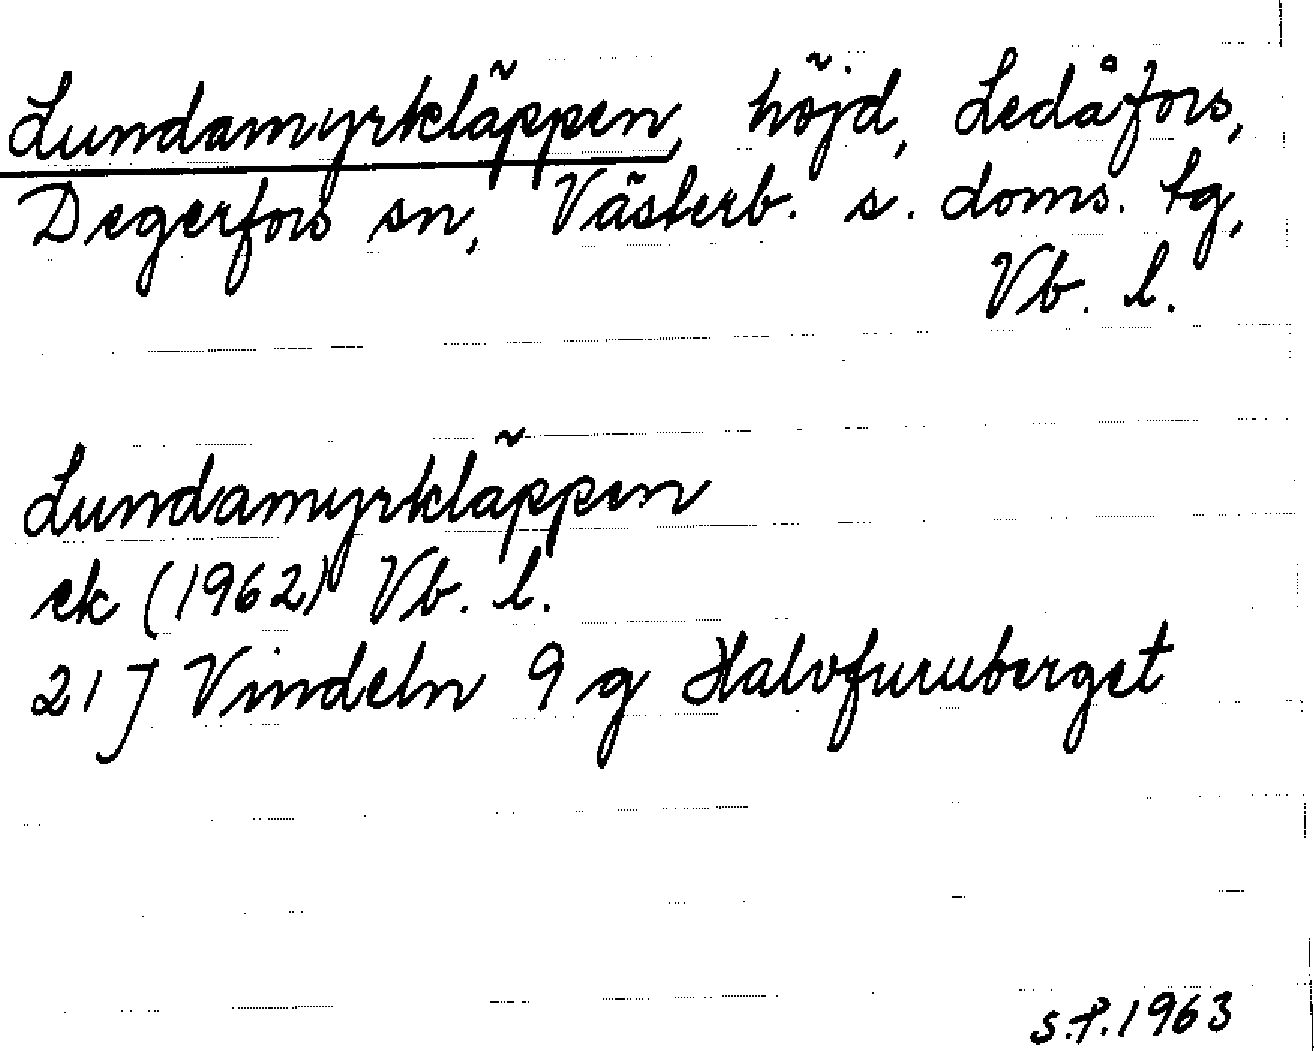 Lundamyrkläppen, höjd, Ledåfors,
Degerfors sn, Västerb. s. doms. tg,
Vb. l.
Lundamyrkläppen
ek (1962) Vb. l.
21 J Vindeln 9 g Halvfuruberget
S.P. 1963